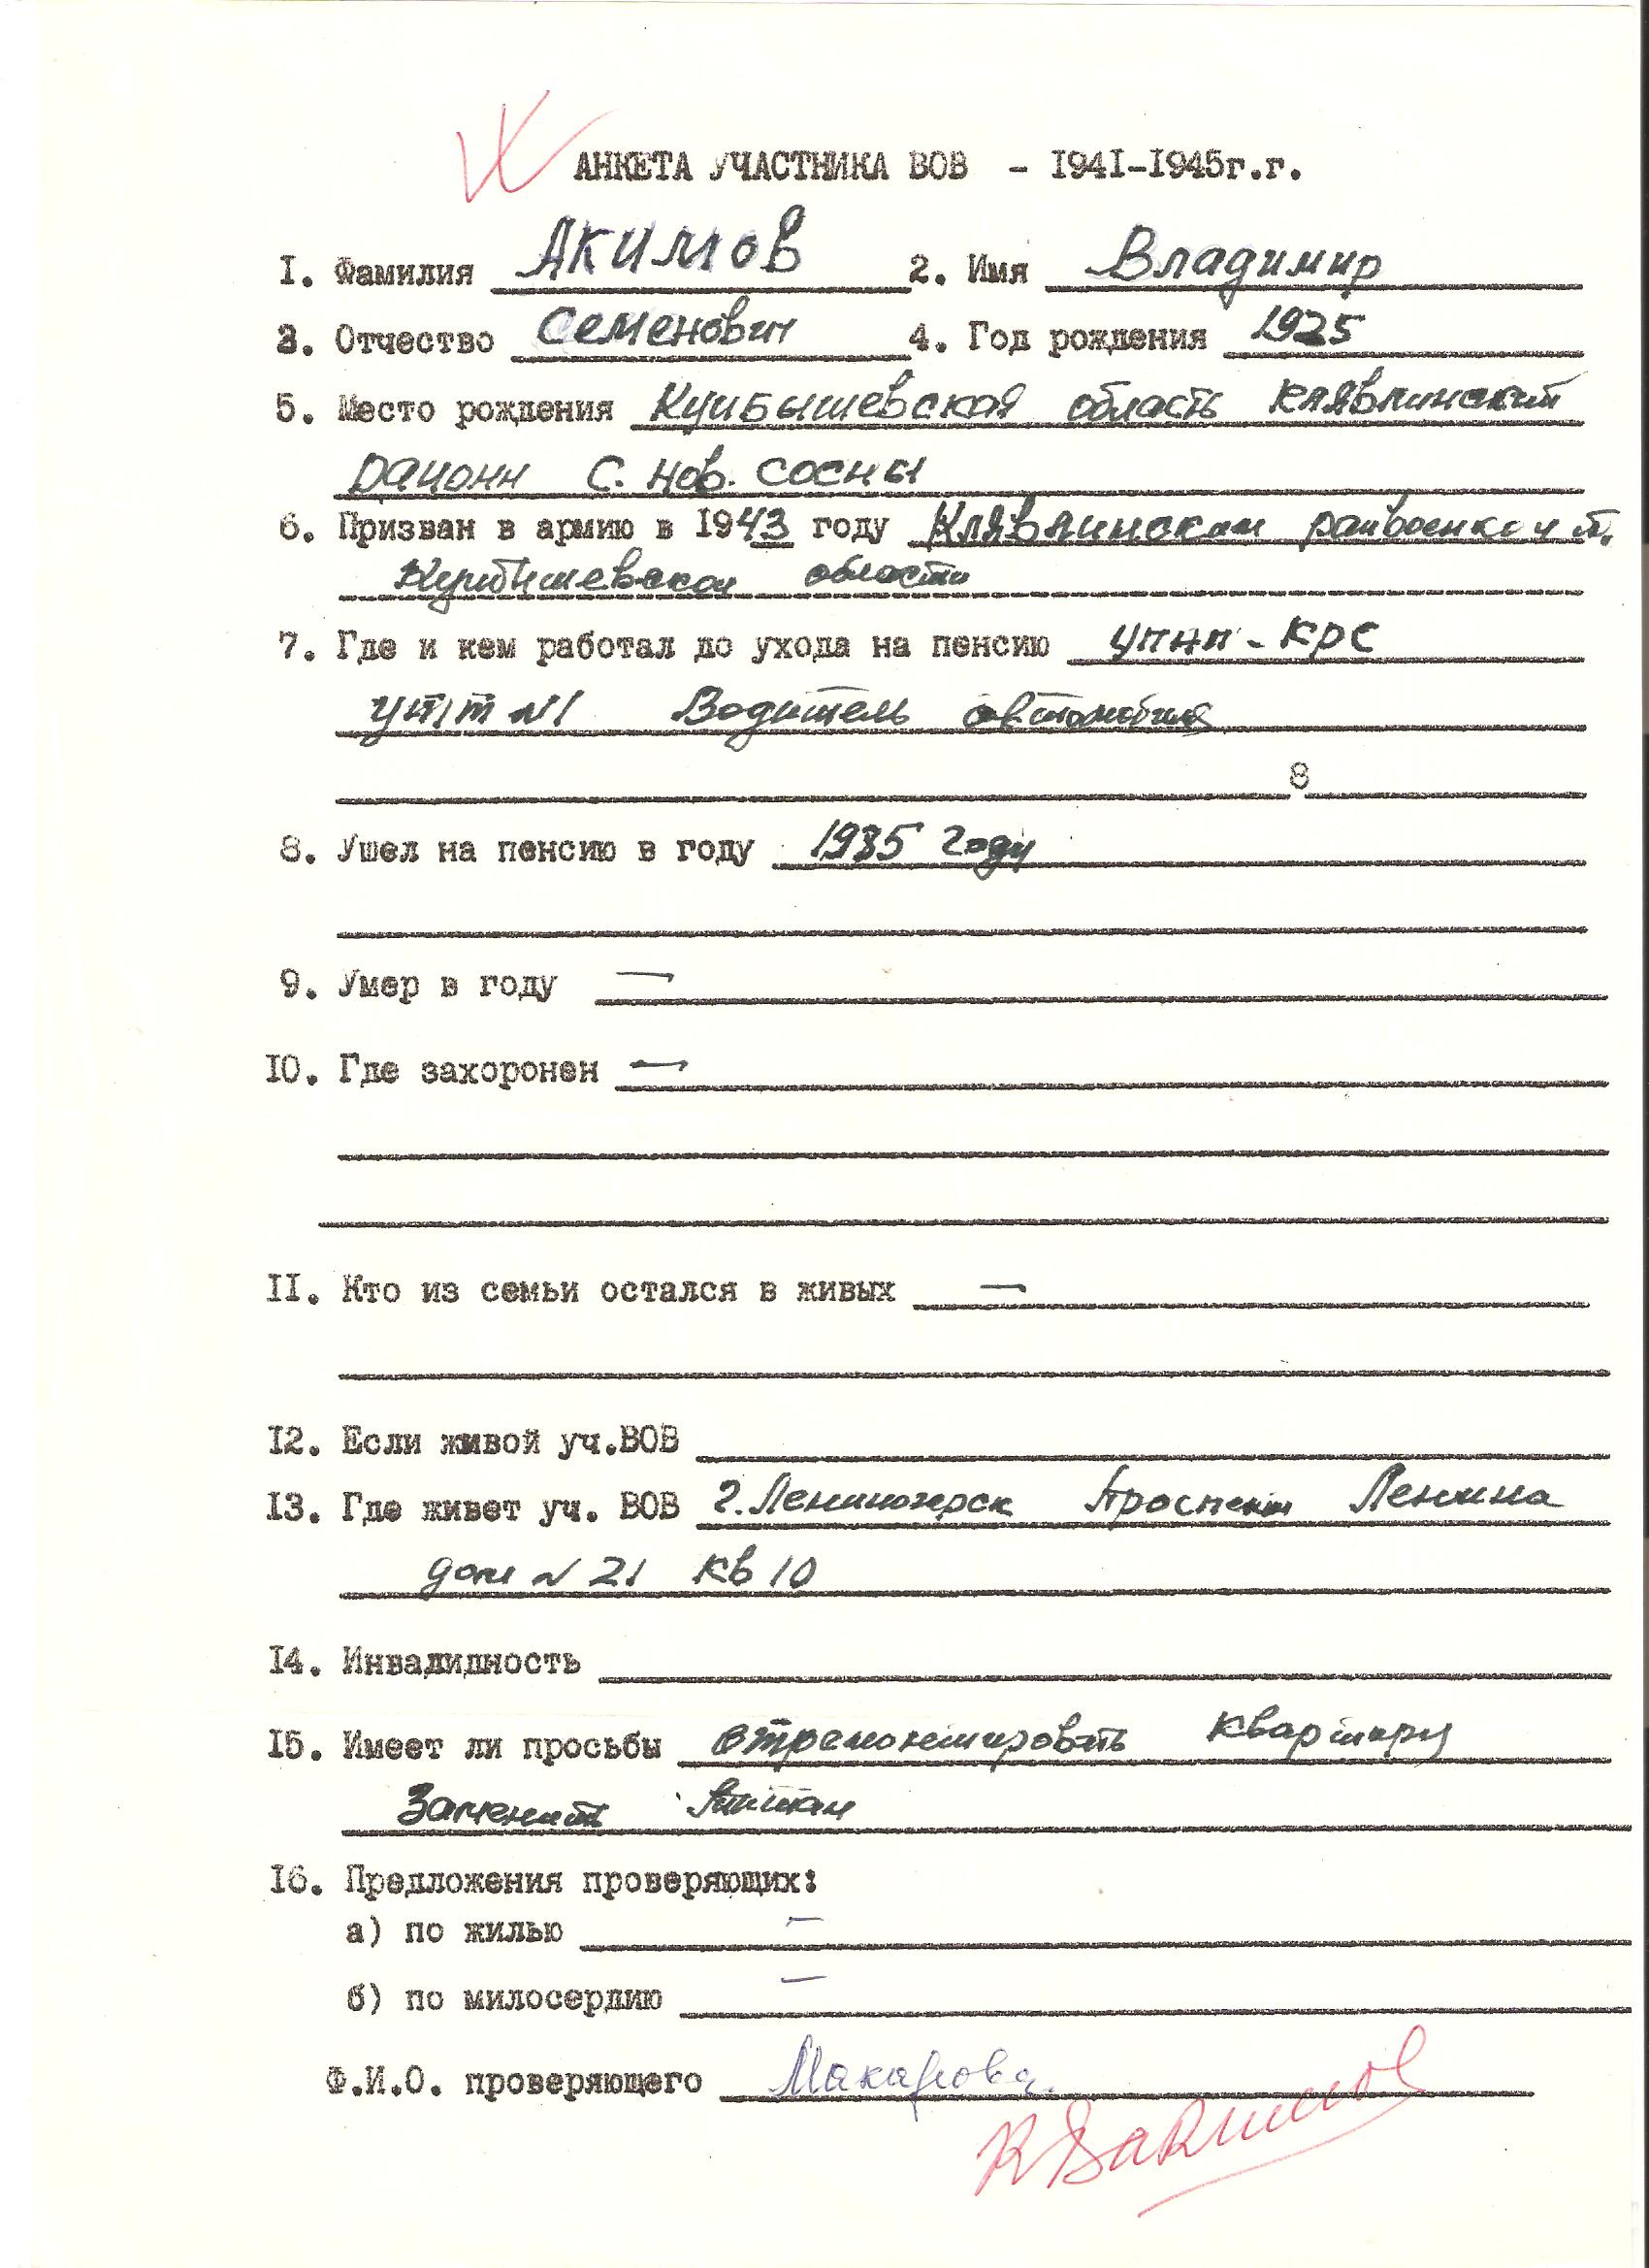 АНКЕТА УЧАСТНИКА ВОВ - 1941-1945г.г.
1. Фамилия Акимов 2. Имя Владимир
3. Отчество Семенович 4. Год рождения 1925
5. Место рождения Куйбышевская область Клявлинский
район с. Нов. Сосны
6. Призван в армию в 1943 году Клявлинском райвоенком
Куйбышевской области
7. Где и кем работал до ухода на пенсию УПНП-КРС
УТТ №1 Водитель автомобиля
8
8. Ушел на пенсию в году 1985 году
9. Умер в году —
10. Где захоронен —
11. Кто из семьи остался в живых —
12. Если живой уч.ВОВ
13. Где живет уч. ВОВ г. Лениногорск Проспект Ленина
дом №21 кв 10
14. Инвалидность
15. Имеет ли просьбы отремонтировать квартиру
Заменить
16. Предложения проверяющих:
а) по жилью —
б) по милосердию —
Ф.И.О. проверяющего Макарова